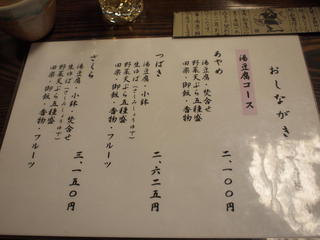 おしながき
湯豆腐コース
あやめ
湯豆腐・焚合せ
野菜天ぷら五種盛
田楽・御飯・香物
二、一〇〇円
つばき
湯豆腐・小鉢
生ゆば(さしみしょうゆで)
野菜天ぷら五種盛
田楽・御飯・香物・フルーツ
二、六二五円
さくら
湯豆腐・小鉢・焚合せ
生ゆば(さしみしょうゆで)
野菜天ぷら五種盛
田楽・御飯・香物・フルーツ
三、一五〇円